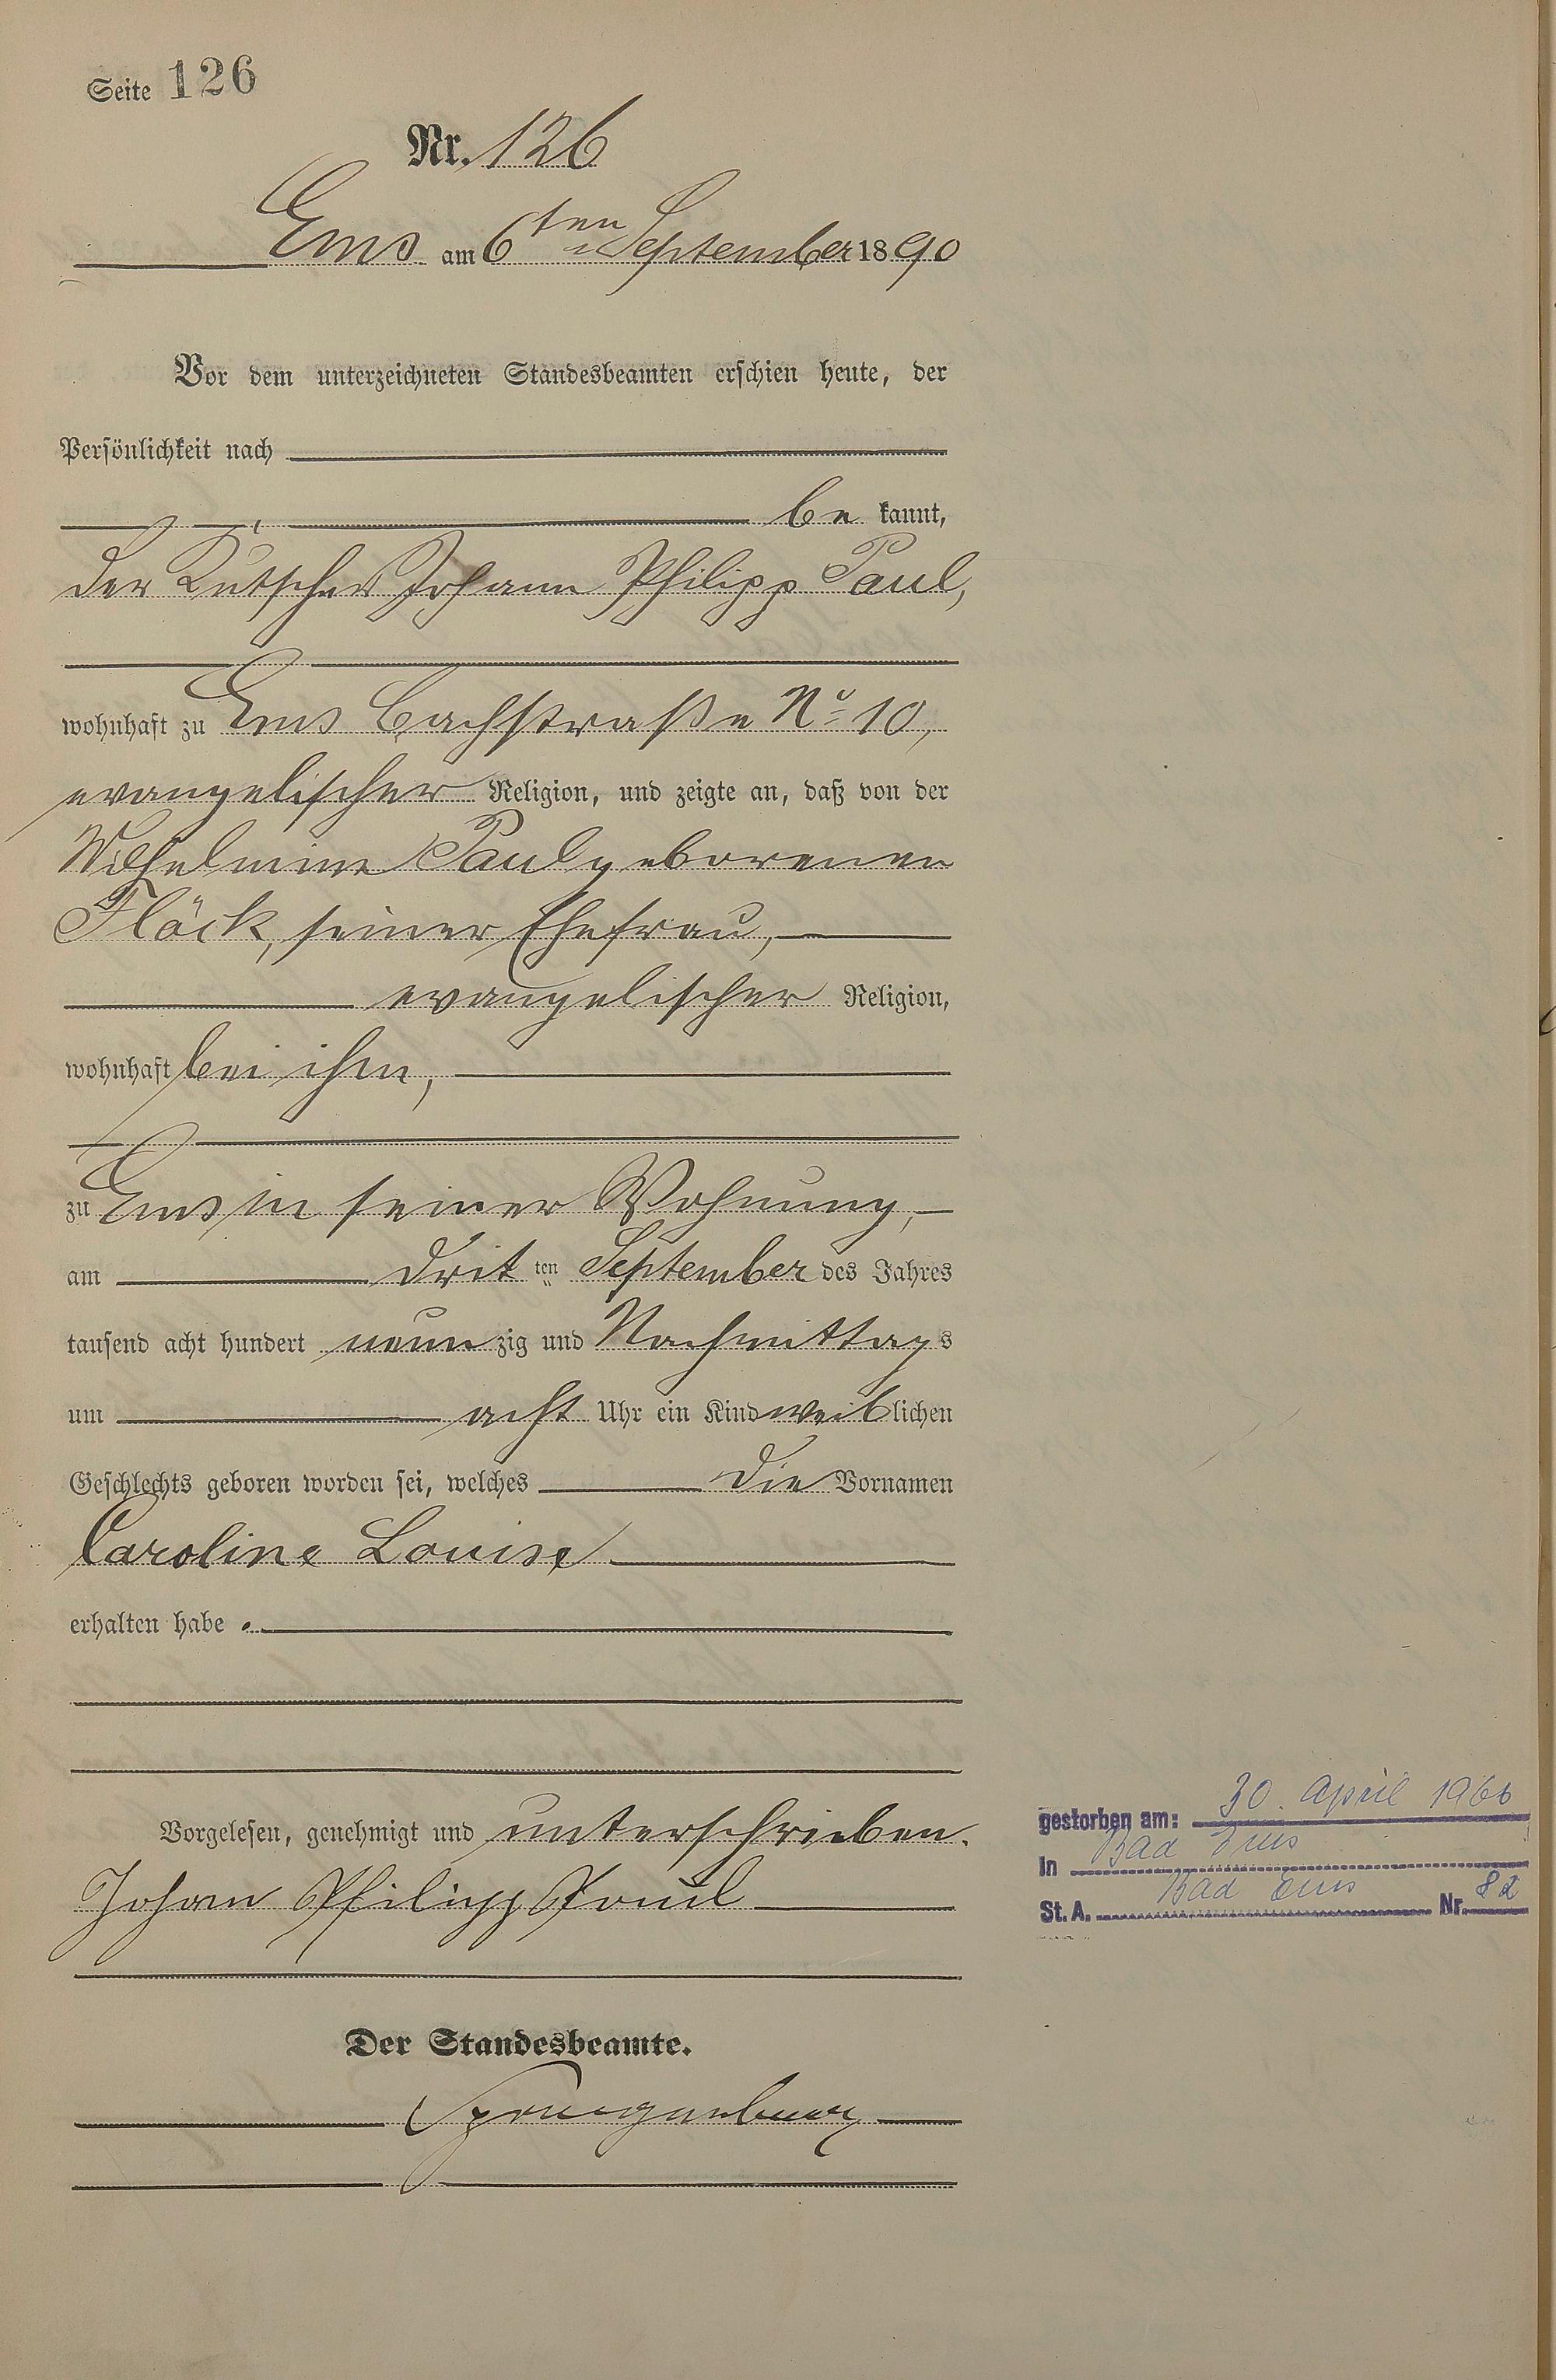 Seite 126
Nr. 126
Ems am 6ten September 1890
Vor dem unterzeichneten Standesbeamten erschien heute, der
Persönlichkeit nach
be kannt,
der Kutscher Johann Philipp Paul,
wohnhaft zu Ems Bachstraße No 10,
evangelischer Religion, und zeigte an, daß von der
Wilhelmine Paul geborenen
Flöck, seiner Ehefrau,
evangelischer Religion,
wohnhaft bei ihm,
zu Ems in seiner Wohnung,
am drit ten September des Jahres
tausend acht hundert neun zig und Nachmittags
um acht Uhr ein Kind weiblichen
Geschlechts geboren worden sei, welches die Vornamen
Caroline Louise
erhalten habe.
Vorgelesen, genehmigt und unterschrieben.
Johann Philipp Paul
Der Standesbeamte.
gestorben am: 30. April 1966
In Bad Ems
St. A. Bad Ems Nr. 82